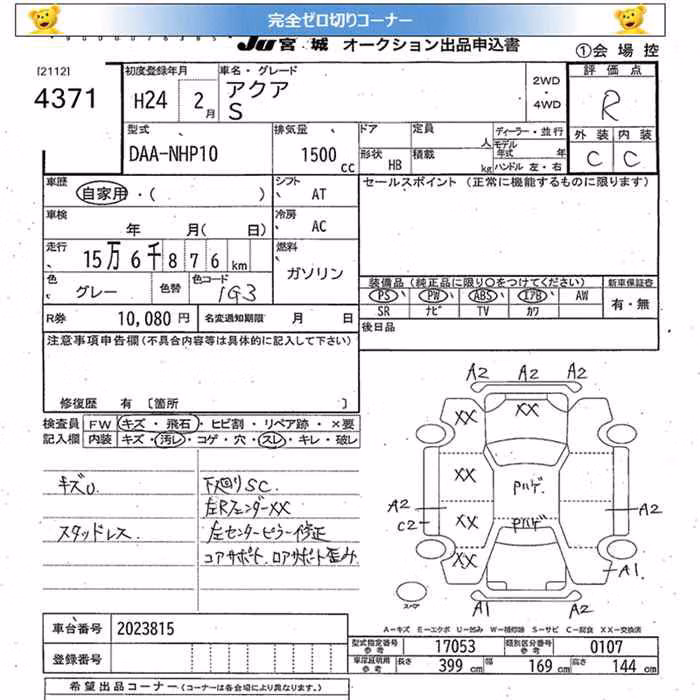 完全ゼロ切りコーナー
JU 宮 城 オークション出品申込書
①会 場 控
[2112]
4371
初度登録年月
H24 2月
車名・グレード
アクア
S
2WD
・
4WD
評 価 点
R
外 装 内 装
C C
型式
DAA-NHP10
排気量
1500 cc
ドア
定員
人
形状
HB
積載
kg
ディーラー・並行
モデル
年式 年
ハンドル 左・右
車歴
自家用・( )
シフト
AT
セールスポイント (正常に機能するものに限ります)
車検
年 月( 日)
冷房
AC
走行
15万 6千 8 7 6 km
燃料
ガソリン
色
グレー
色替
色コード
1G3
装備品 (純正品に限り○をつけてください)
新車保証書
PS PW ABS エアB AW
有・無
SR ナビ TV カワ
R券 10,080 円
名変通知期限 月 日
後日品
注意事項申告欄 (不具合内容等は具体的に記入して下さい)
修復歴 有 〔箇所 〕
検査員
記入欄
FW キズ・飛石・ヒビ割・リペア跡・×要
内装 キズ・汚レ・コゲ・穴・スレ・キレ・破レ
キズU
スタッドレス
下廻りSC.
左Rフェンダー XX
左センターピラー修正
コアサポート.ロアサポート歪み
A2 A2 A2
XX XX
XX Pハゲ.
A2 XX Pハゲ A2
C2
XX A1
スペア
A1 A2
A-キズ E-エクボ U-凹み W-補修跡 S-サビ C-腐食 XX-交換済
車台番号 2023815
登録番号
型式指定番号
参考
17053
類別区分番号
参考
0107
車庫証明用
参考
長さ 399 cm
幅 169 cm
高さ 144 cm
希望出品コーナー (コーナーは各会場により異なります。)